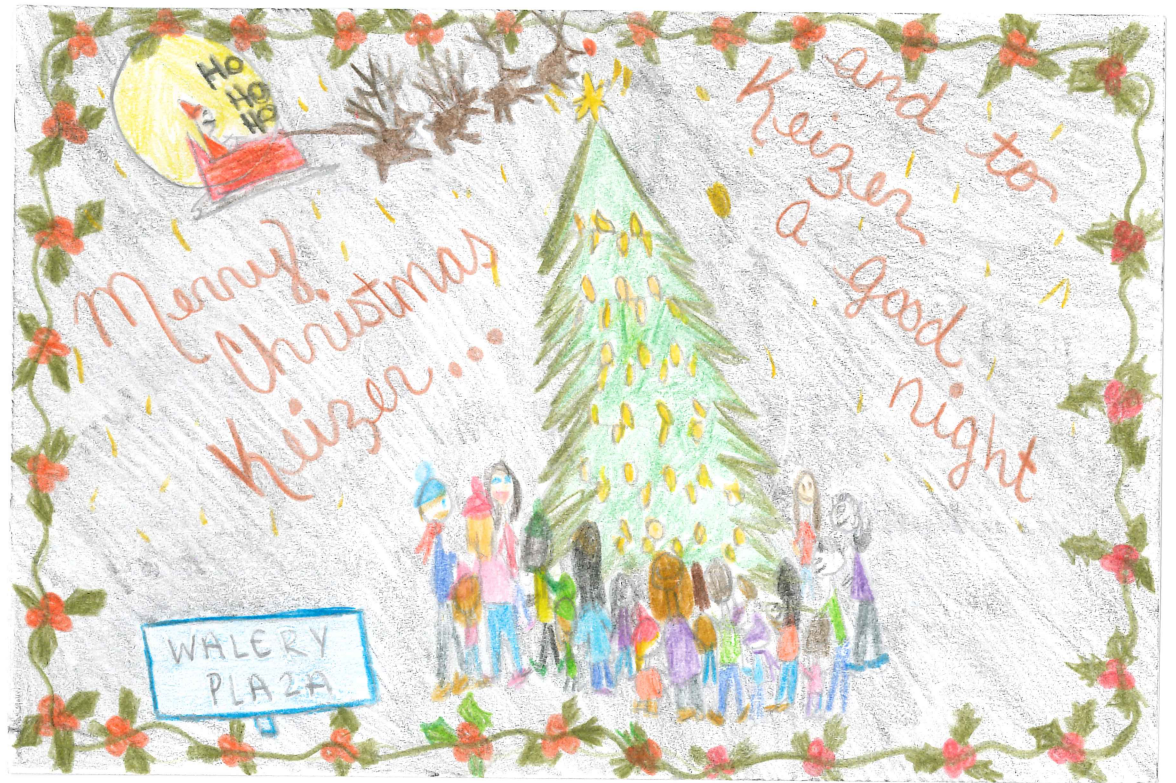 HO
HO
HO
Merry
Christmas
Keizer...
and to
Keizer
a
good
night
WALERY
PLAZA